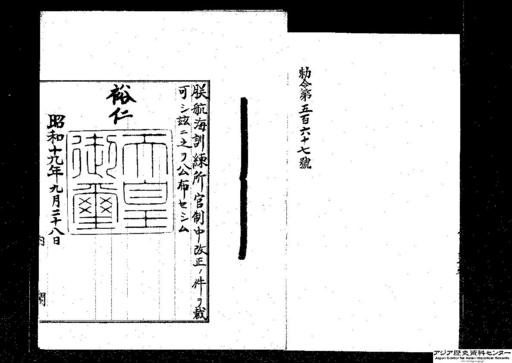 勅令第五百六十七號
朕航海訓練所官制中改正ノ件ヲ裁
可シ茲ニ之ヲ公布セシム
裕仁
天皇
御璽
昭和十九年九月二十八日
内
閣
アジア歴史資料センター
Japan Center for Asian Historical Records